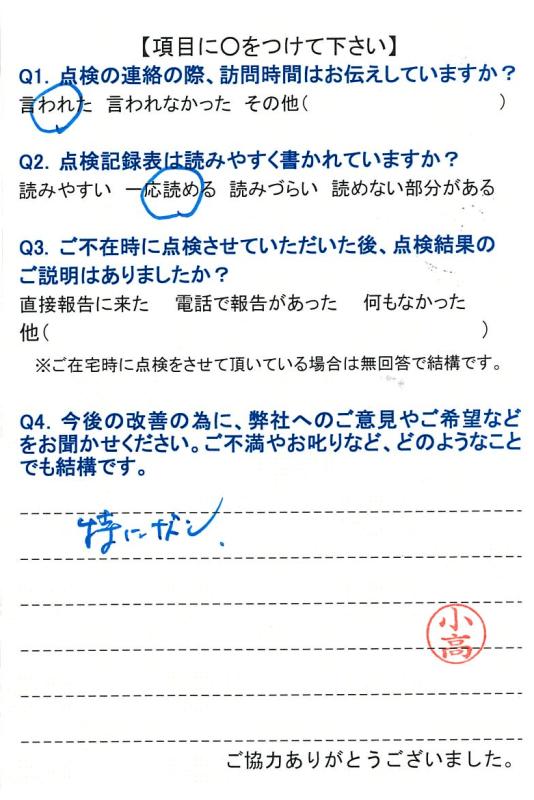 【項目に〇をつけて下さい】
Q1. 点検の連絡の際、訪問時間はお伝えしていますか？
言われた 言われなかった その他( )
Q2. 点検記録表は読みやすく書かれていますか？
読みやすい 一応読める 読みづらい 読めない部分がある
Q3. ご不在時に点検させていただいた後、点検結果の
ご説明はありましたか？
直接報告に来た 電話で報告があった 何もなかった
他( )
※ご在宅時に点検をさせて頂いている場合は無回答で結構です。
Q4. 今後の改善の為に、弊社へのご意見やご希望など
をお聞かせください。ご不満やお叱りなど、どのようなこと
でも結構です。
特にナシ.
小高
ご協力ありがとうございました。